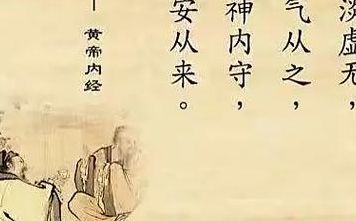 淡虚无，
气从之，
神内守，
安从来。
— 黄帝内经